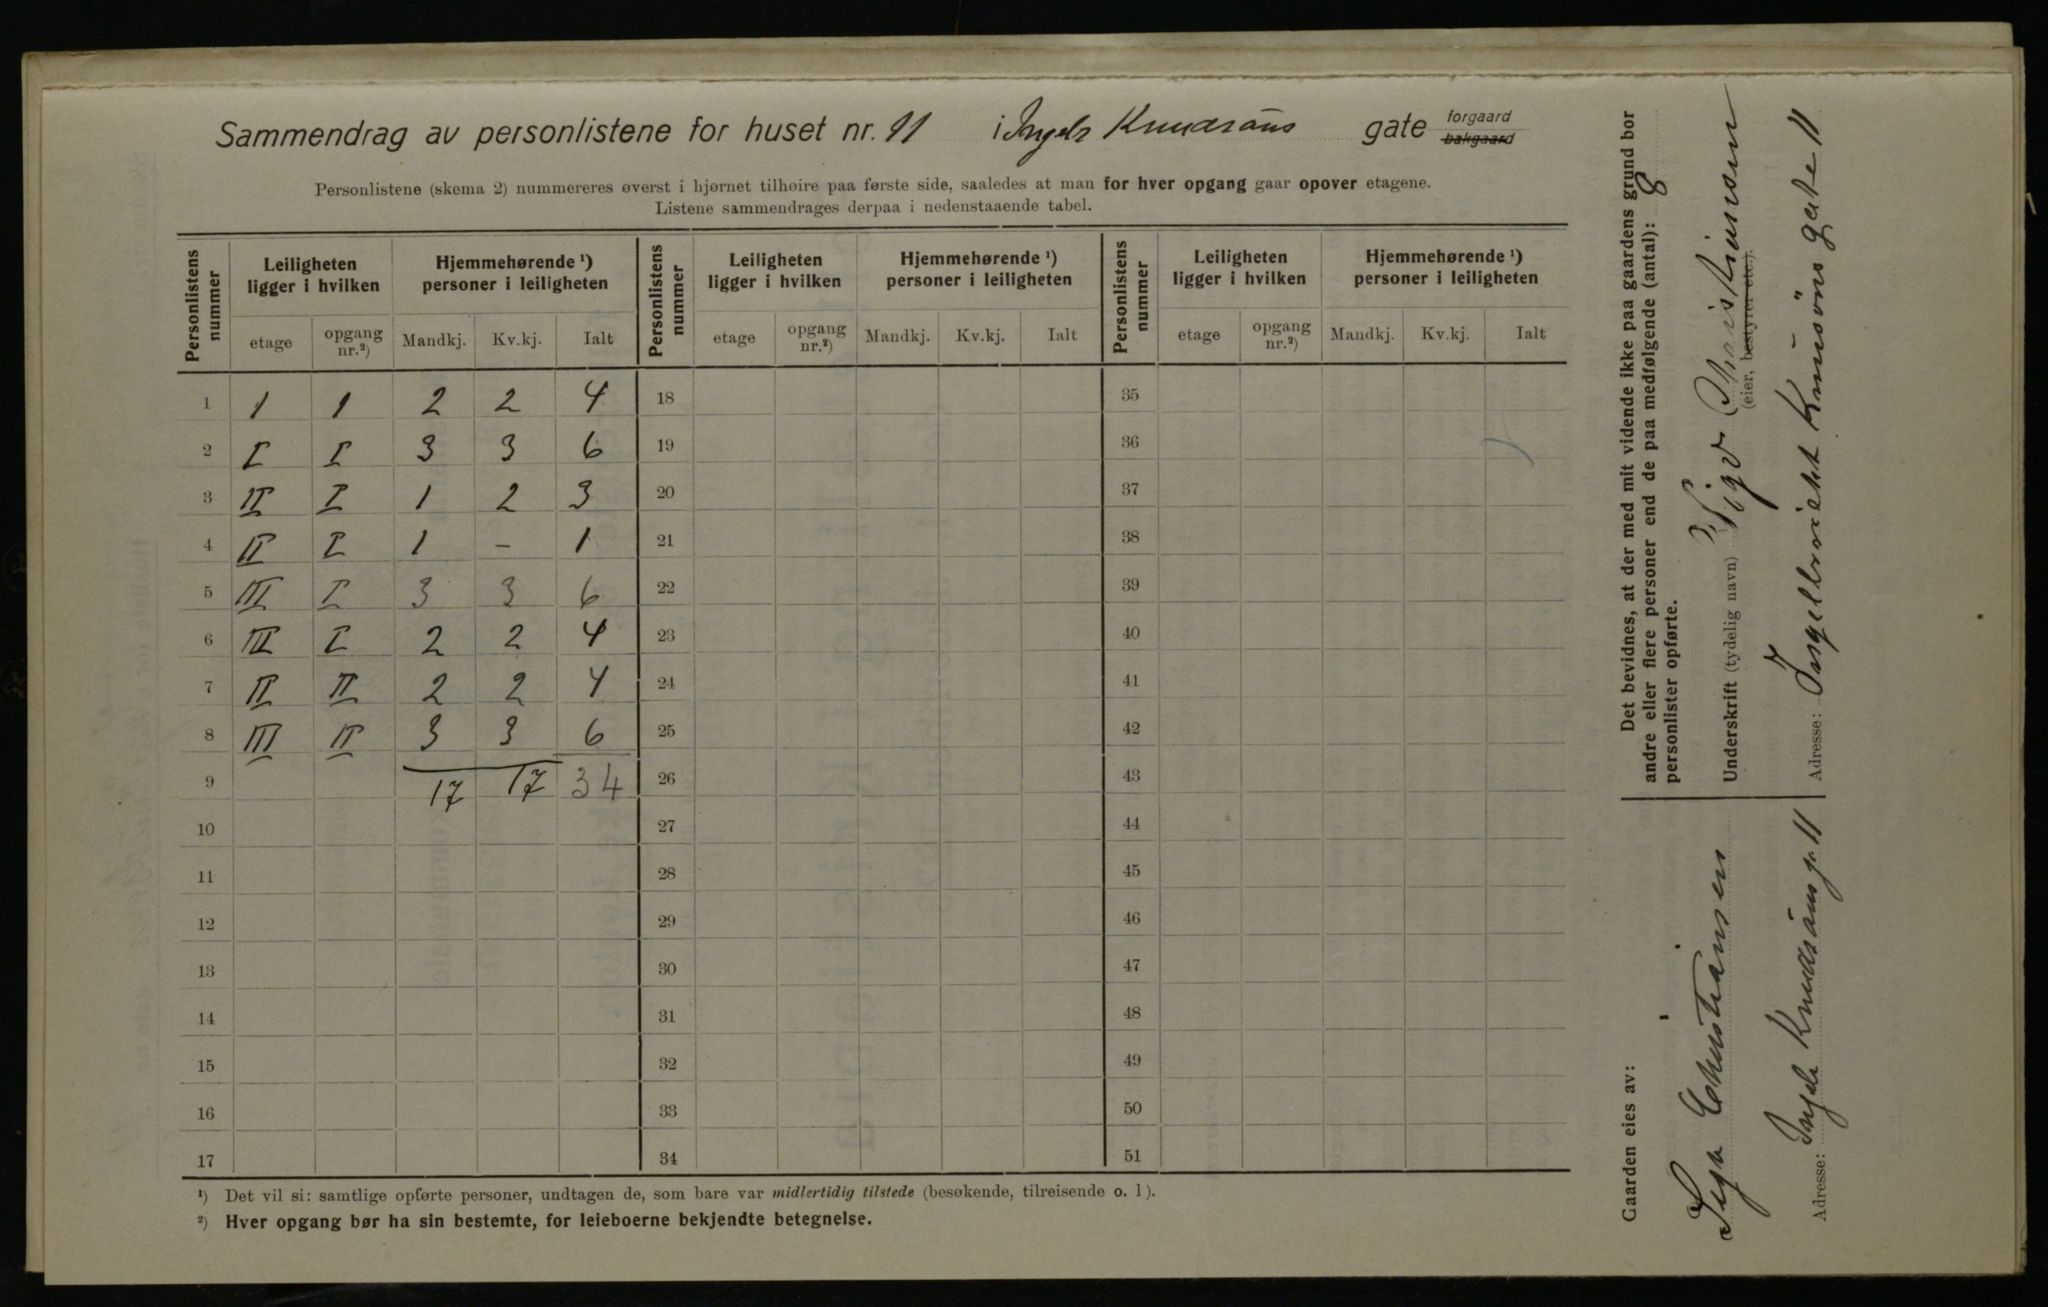 Sammendrag av personlistene for huset nr. 11 i Ingebr Knudsöns gate forgaard bakgaard
Personlistene (skema 2) nummereres øverst i hjørnet tilhøire paa første side, saaledes at man for hver opgang gaar opover etagene.
Listene sammendrages derpaa i nedenstaaende tabel.
Personlistens nummer | Leiligheten ligger i hvilken | Hjemmehørende ¹) personer i leiligheten | Personlistens nummer | Leiligheten ligger i hvilken | Hjemmehørende ¹) personer i leiligheten | Personlistens nummer | Leiligheten ligger i hvilken | Hjemmehørende ¹) personer i leiligheten
etage | opgang nr.²) | Mandkj. | Kv.kj. | Ialt | etage | opgang nr.²) | Mandkj. | Kv.kj. | Ialt | etage | opgang nr.²) | Mandkj. | Kv.kj. | Ialt
1 | 1 | 1 | 2 | 2 | 4 | 18 | 35
2 | I | I | 3 | 3 | 6 | 19 | 36
3 | II | I | 1 | 2 | 3 | 20 | 37
4 | II | I | 1 | – | 1 | 21 | 38
5 | III | I | 3 | 3 | 6 | 22 | 39
6 | III | I | 2 | 2 | 4 | 23 | 40
7 | II | II | 2 | 2 | 4 | 24 | 41
8 | III | II | 3 | 3 | 6 | 25 | 42
9 | 17 | 17 | 34 | 26 | 43
10 | 27 | 44
11 | 28 | 45
12 | 29 | 46
13 | 30 | 47
14 | 31 | 48
15 | 32 | 49
16 | 33 | 50
17 | 34 | 51
¹) Det vil si: samtlige opførte personer, undtagen de, som bare var midlertidig tilstede (besøkende, tilreisende o. l).
²) Hver opgang bør ha sin bestemte, for leieboerne bekjendte betegnelse.
Gaarden eies av:
Sigv Christiansen
Adresse: Ingebr Knudsöns gt. 11
Det bevidnes, at der med mit vidende ikke paa gaardens grund bor
andre eller flere personer end de paa medfølgende (antal): 8
personlister opførte.
Underskrift (tydelig navn) Sigv Christiansen
(eier, bestyrer etc.).
Adresse: Ingebrecht Knusöns gate 11